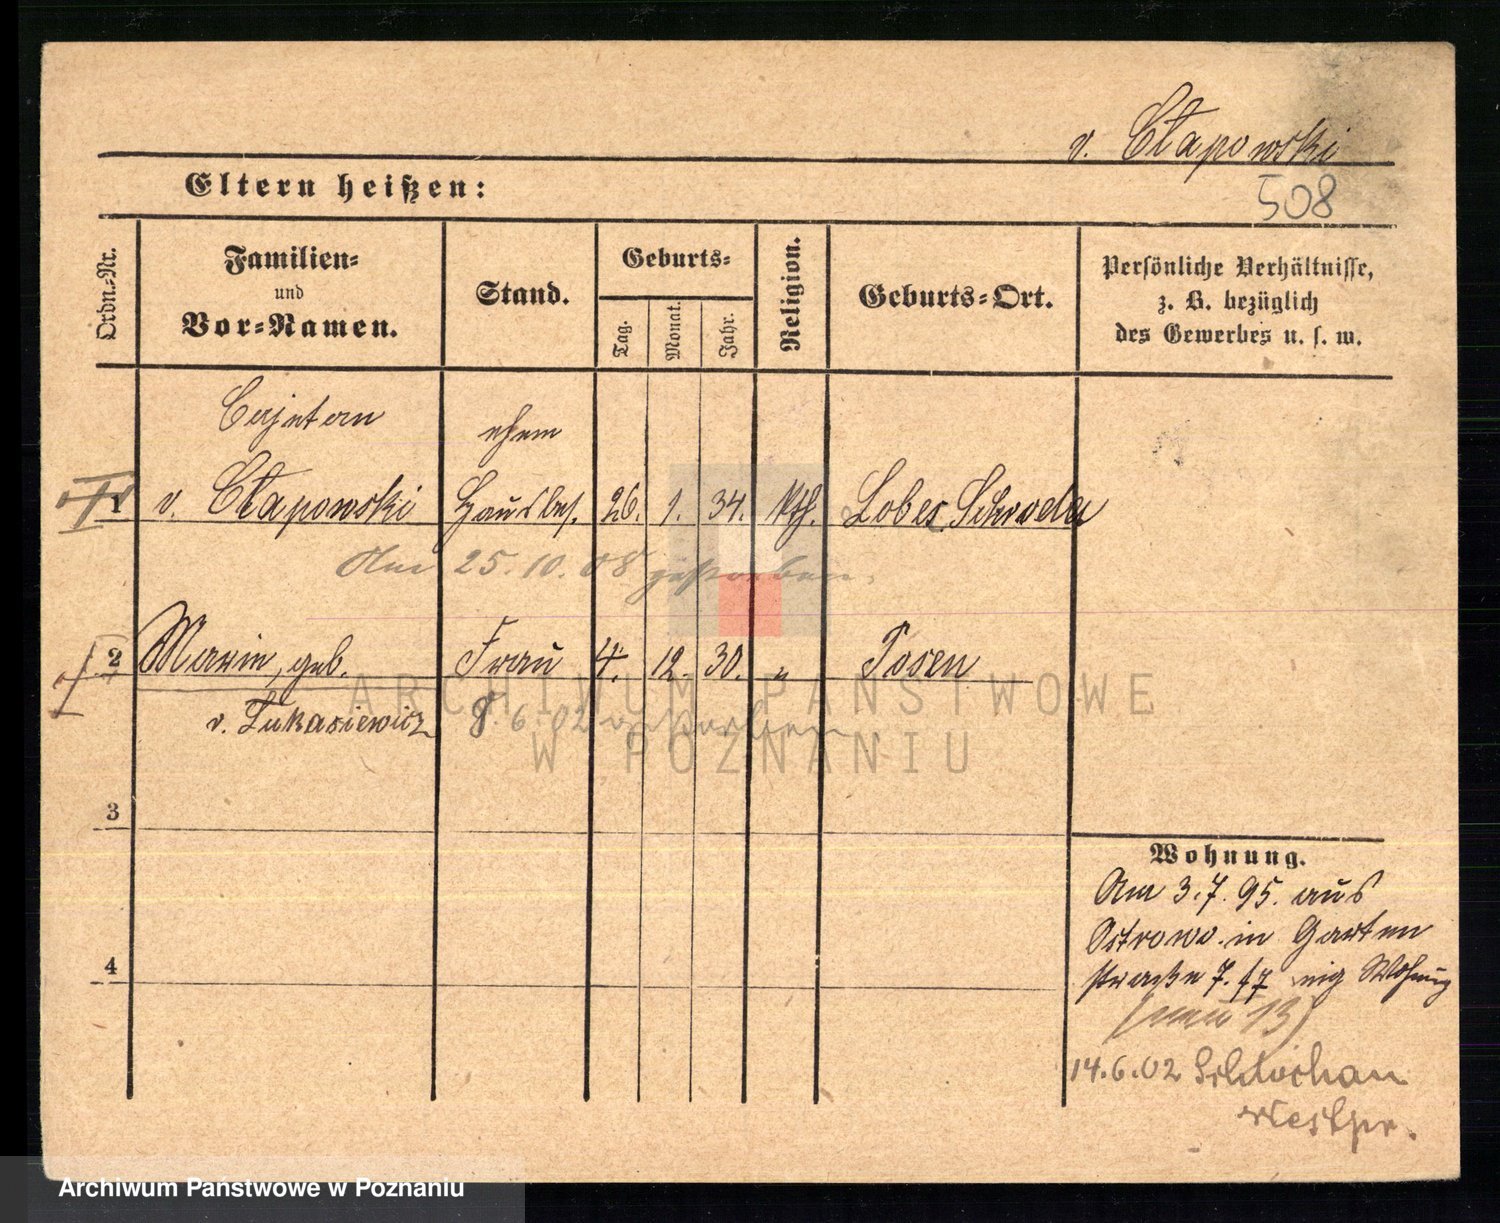 v. Cłapowski
Eltern heißen:
508
Ordn.-Nr.
Familien-
und
Vor-Namen.
Stand.
Geburts-
Tag.
Monat.
Jahr.
Religion.
Geburts-Ort.
Persönliche Verhältnisse,
z. B. bezüglich
des Gewerbes u. s. w.
Cajetan
ehem
1 v. Cłapowski Hausbes. 26. 1. 34. kth. Lobes Schroda
Am 25.10.08 gestorben.
2 Marie, geb. Frau 4. 12. 30. " Posen
v. Łukasiewicz 8.6.02 verstorben
3
4
Wohnung.
Am 3.7.95. aus
Ostrowo in Garten
straße 7. Wohnung
(neu 13)
14.6.02
Westpr.
ARCHIWUM PAŃSTWOWE
W POZNANIU
Archiwum Państwowe w Poznaniu